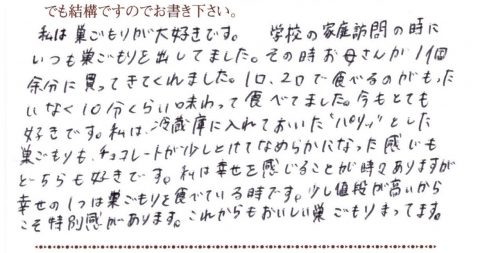 でも結構ですのでお書き下さい。
私は巣ごもりが大好きです。　学校の家庭訪問の時に
いつも巣ごもりを出してました。その時お母さんが1個
余分に買ってきてくれました。1口、2口で食べるのがもった
いなく10分くらい味わって食べてました。今もとても
好きです。私は、冷蔵庫に入れておいた"パリッ"とした
巣ごもりも、チョコレートが少しとけてなめらかになった感じも
どちらも好きです。私は幸せを感じることが時々ありますが
幸せの1つは巣ごもりを食べている時です。少し値段が高いから
こそ特別感があります。これからもおいしい巣ごもりまってます。